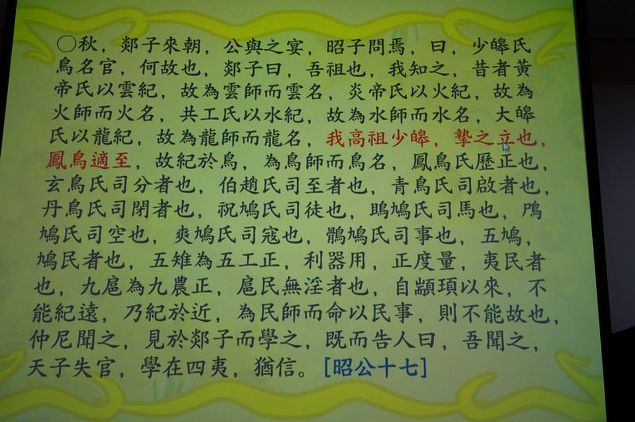 〇秋，郯子來朝，公與之宴，昭子問焉，曰，少皞氏
鳥名官，何故也，郯子曰，吾祖也，我知之，昔者黃
帝氏以雲紀，故為雲師而雲名，炎帝氏以火紀，故為
火師而火名，共工氏以水紀，故為水師而水名，大皞
氏以龍紀，故為龍師而龍名，我高祖少皞，摯之立也，
鳳鳥適至，故紀於鳥，為鳥師而鳥名，鳳鳥氏歷正也，
玄鳥氏司分者也，伯趙氏司至者也，青鳥氏司啟者也，
丹鳥氏司閉者也，祝鳩氏司徒也，鴡鳩氏司馬也，鳲
鳩氏司空也，爽鳩氏司寇也，鶻鳩氏司事也，五鳩，
鳩民者也，五雉為五工正，利器用，正度量，夷民者
也，九扈為九農正，扈民無淫者也，自顓頊以來，不
能紀遠，乃紀於近，為民師而命以民事，則不能故也，
仲尼聞之，見於郯子而學之，既而告人曰，吾聞之，
天子失官，學在四夷，猶信。[昭公十七]